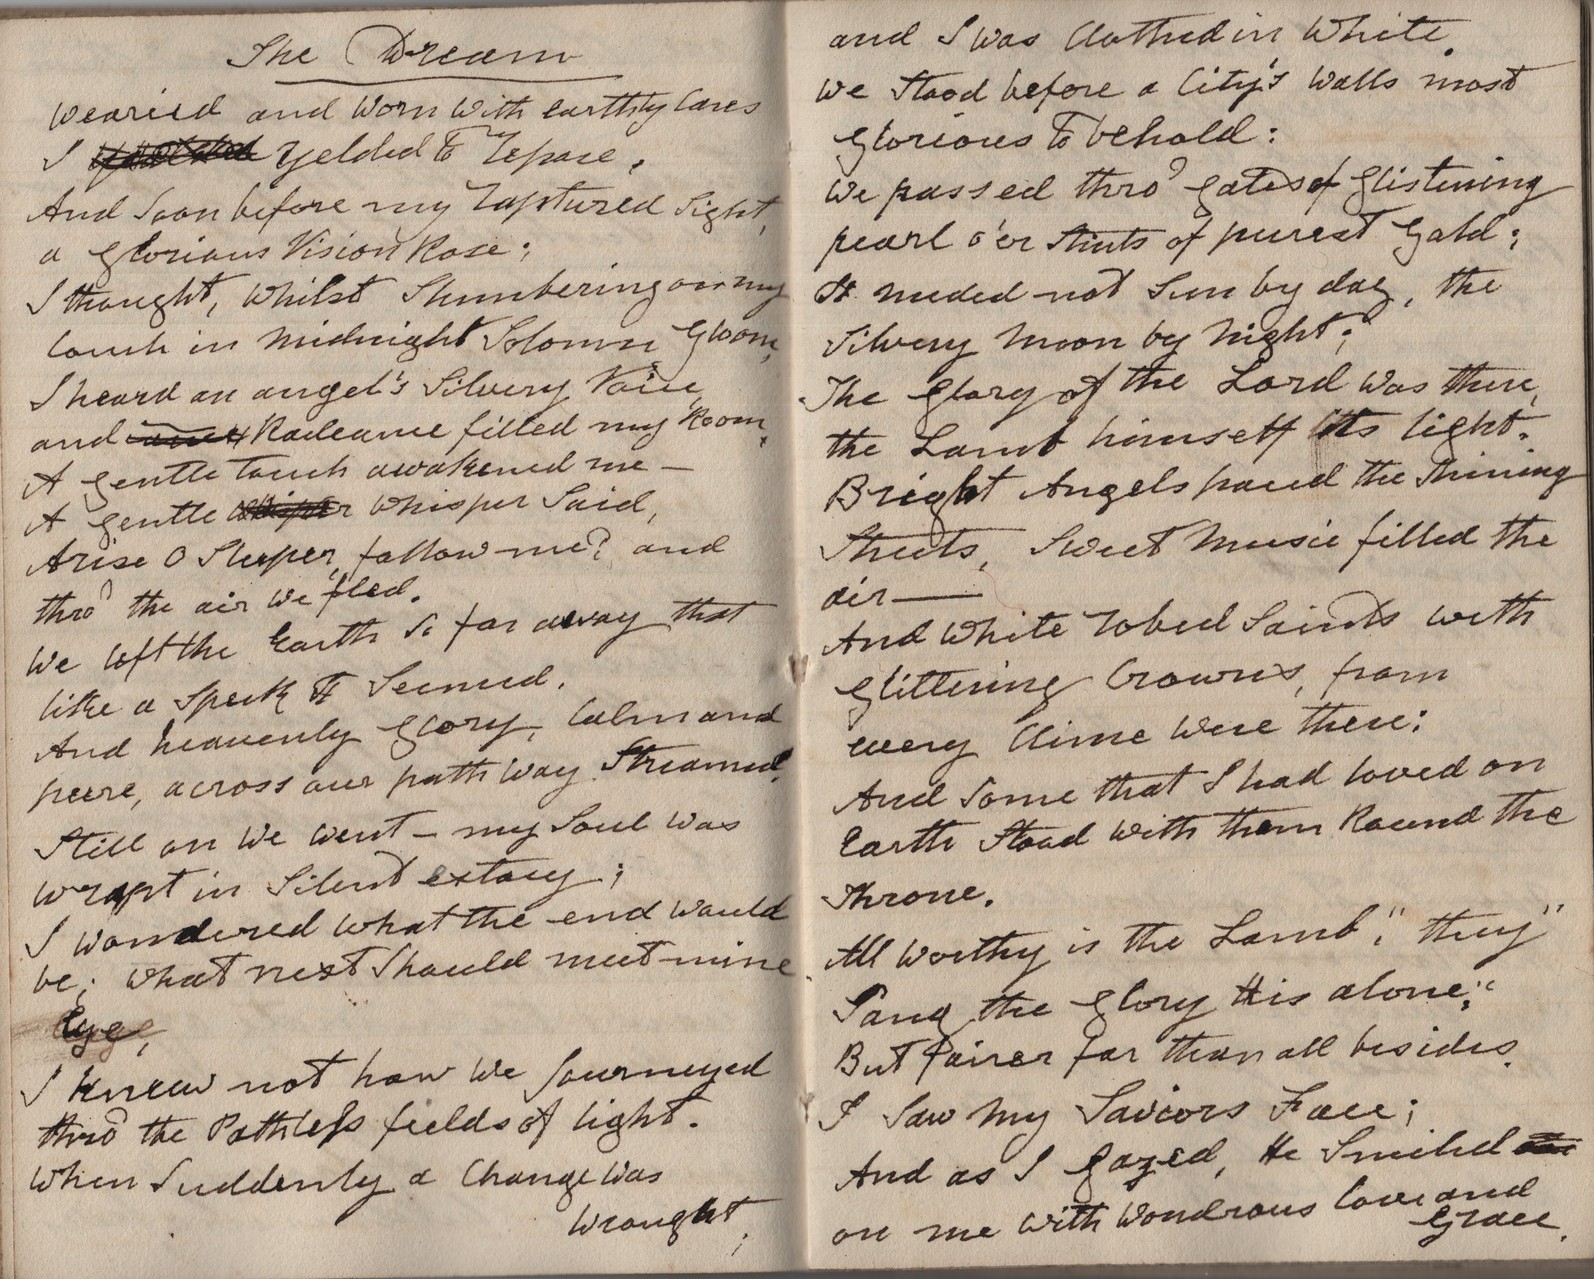 The Dream
Wearied and Worn with earthly Cares
I yelded to repose.
And Soon before my raptured Sight,
a glorious Vision Rose;
I thought, Whilst Slumbering on my
Couch in Midnight Solomn Gloom,
I heard an angel's Silvery Voice,
and Radeance filled my Room,
A gentle touch awakened me —
A gentle Whisper Said,
Arise O Sleeper, follow me; and
thro' the air we fled.
We left the Earth So far away that
like a Speck It Seemed.
And heavenly glory, Calm and
pure, across our path way Streamed.
Still on We went — my Soul was
wrapt in Silent extacy;
I wondered what the end would
be; What next Should meet mine
Eye,
I knew not how We Journeyed
thro' the Pathless fields of light.
When Suddenly a Change was
Wrought,
and I was Clothed in White.
We Stood before a City's Walls most
Glorious To behold:
We passed thro' gates of glistening
pearl o'er Streets of purest Gold;
It needed not Sun by day, the
Silvery Moon by Night;
The glory of the Lord was there,
the Lamb himself its light.
Bright Angels paced the Shining
Streets, Sweet Music filled the
air —
And White robed Saints with
Glittering Crowns, from
every Clime Were there:
And Some that I had loved on
Earth Stood With them Round the
Throne.
All Worthy is the Lamb", they"
Sang the Glory His alone;"
But fairer far than all besides.
I Saw My Saviors Face;
And as I gazed, He Smiled
on me With Wondrous love and
Grace.